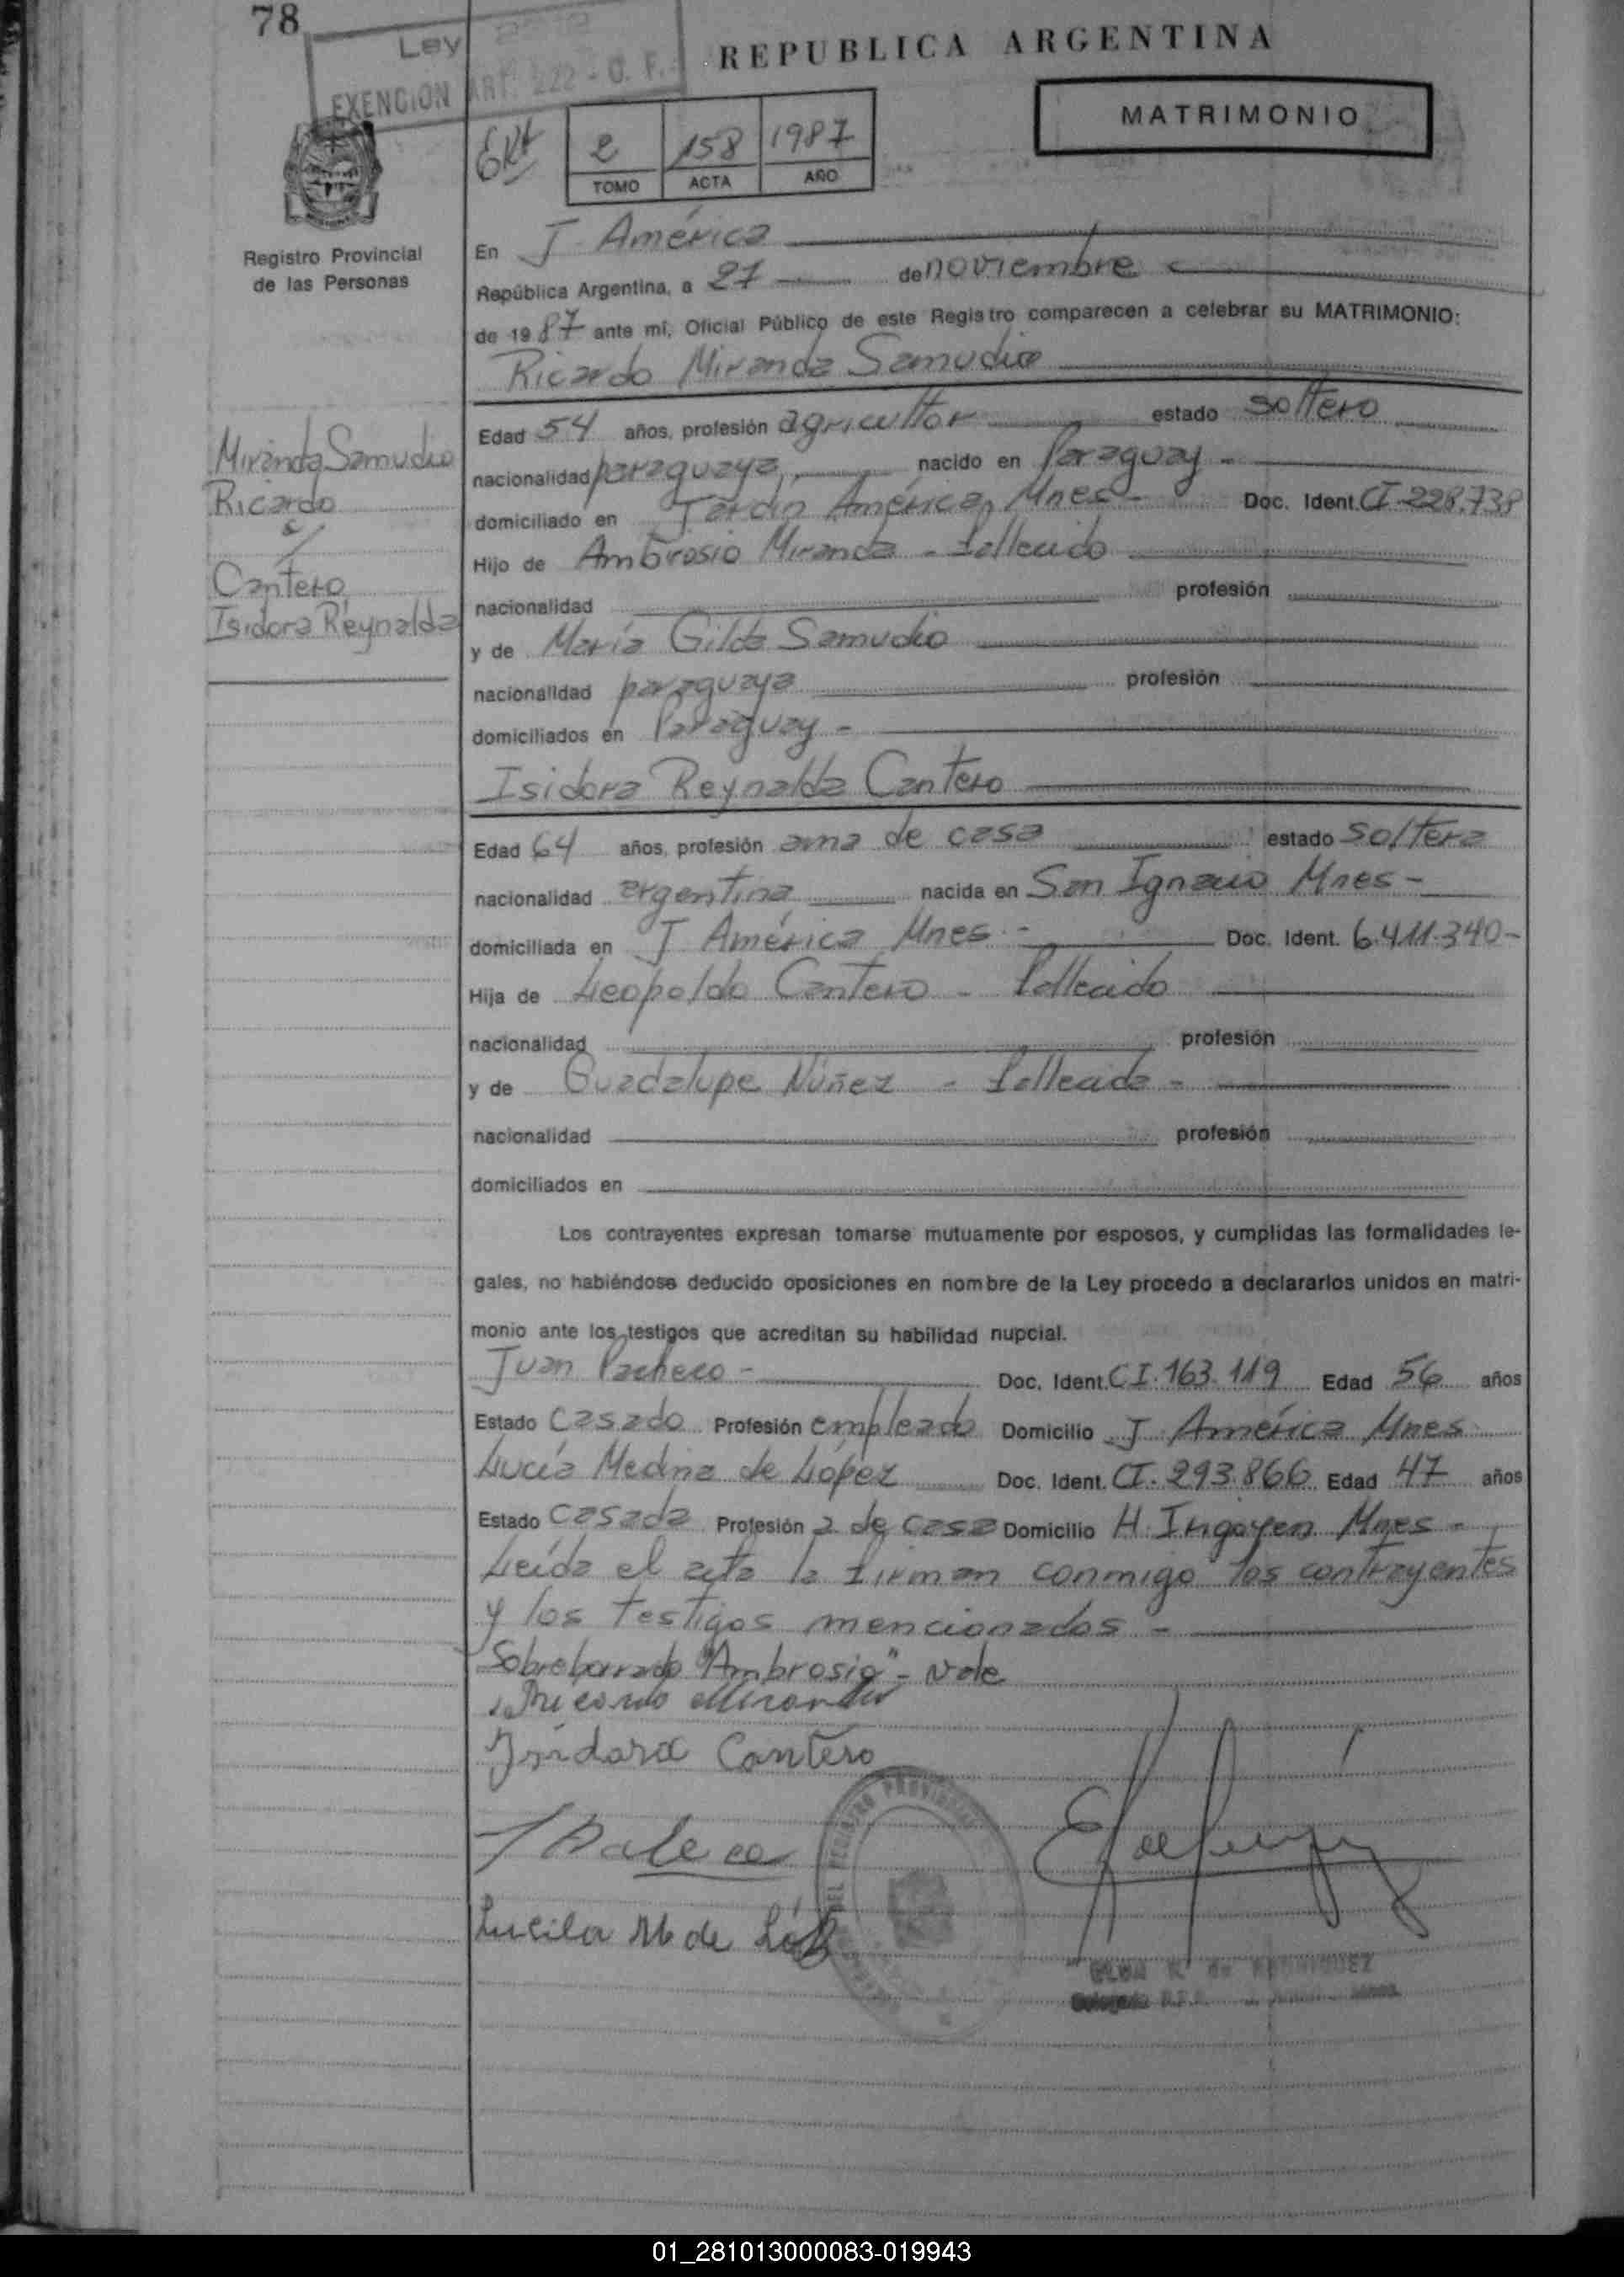 78
Ley
EXENCION ART. 222 - C. F.
REPUBLICA ARGENTINA
MATRIMONIO
2 158 1987
TOMO ACTA AÑO
Registro Provincial
de las Personas
En J. América
República Argentina, a 27 de noviembre
de 1987 ante mí, Oficial Público de este Registro comparecen a celebrar su MATRIMONIO:
Ricardo Miranda Samudio
Miranda Samudio
Ricardo
c/
Cantero
Isidora Reynalda
Edad 54 años, profesión agricultor estado soltero
nacionalidad paraguaya, nacido en Paraguay -
domiciliado en Jardín América, Mnes - Doc. Ident. CI-228.738
Hijo de Ambrosio Miranda - fallecido
nacionalidad profesión
y de María Gilda Samudio
nacionalidad paraguaya profesión
domiciliados en Paraguay -
Isidora Reynalda Cantero
Edad 64 años, profesión ama de casa estado soltera
nacionalidad argentina nacida en San Ignacio Mnes -
domiciliada en J América Mnes - Doc. Ident. 6.411.340-
Hija de Leopoldo Cantero - fallecido
nacionalidad profesión
y de Guadalupe Núñez - fallecida -
nacionalidad profesión
domiciliados en
Los contrayentes expresan tomarse mutuamente por esposos, y cumplidas las formalidades le-
gales, no habiéndose deducido oposiciones en nombre de la Ley procedo a declararlos unidos en matri-
monio ante los testigos que acreditan su habilidad nupcial.
Juan Pacheco - Doc. Ident. CI.163.119 Edad 56 años
Estado casado Profesión empleado Domicilio J. América Mnes
Lucía Medina de López Doc. Ident. CI. 293.866 Edad 47 años
Estado casada Profesión a de casa Domicilio H. Irigoyen Mnes -
Leída el acta la firman conmigo los contrayentes
y los testigos mencionados -
Sobreborrado "Ambrosio" - Vale
Ricardo Miranda
Isidora Cantero
Lucila M de
DEL REGISTRO PROVINCIAL
01_281013000083-019943